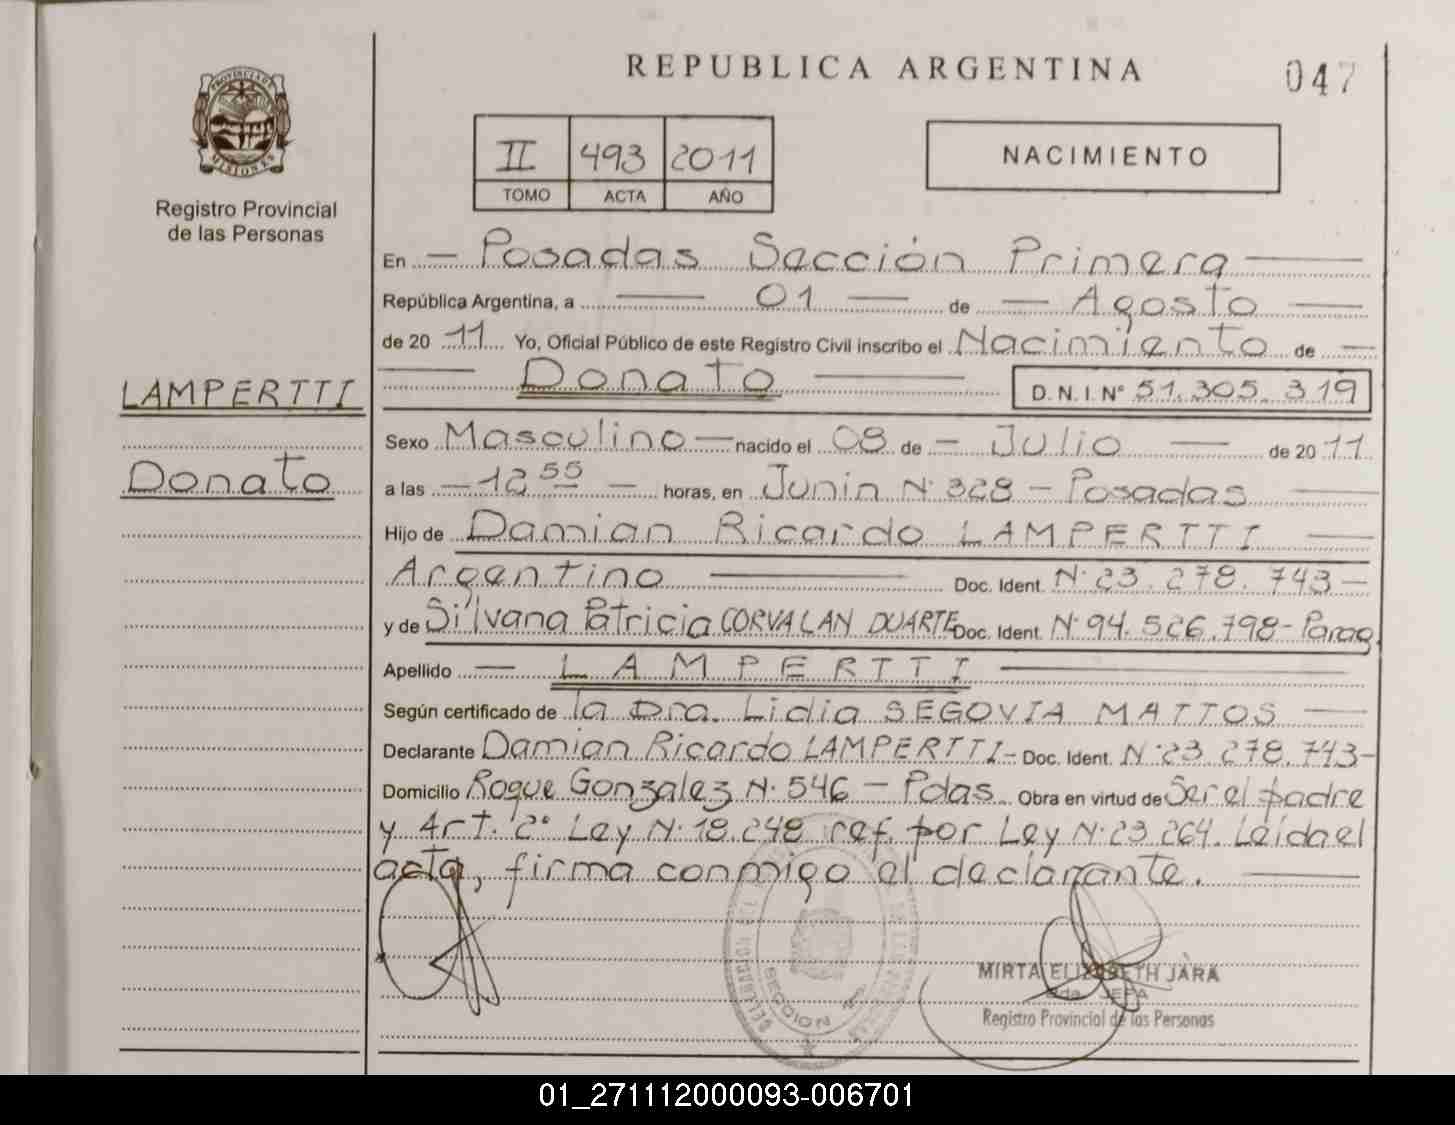 REPUBLICA ARGENTINA
047
PROVINCIA DE
MISIONES
Registro Provincial
de las Personas
II 493 2011
TOMO ACTA AÑO
NACIMIENTO
En — Posadas Sección Primera —
República Argentina, a — 01 — de — Agosto —
de 20 11 Yo, Oficial Público de este Registro Civil inscribo el Nacimiento de —
— Donato — D.N.I. N° 51.305.319
LAMPERTTI
Donato
Sexo Masculino — nacido el 08 de — Julio — de 20 11
a las — 12 55 — horas, en Junin N° 328 – Posadas —
Hijo de Damian Ricardo LAMPERTTI —
Argentino — Doc. Ident. N° 23.278.743 —
y de Silvana Patricia CORVALAN DUARTE Doc. Ident. N° 94.526.798 – Parag.
Apellido — LAMPERTTI —
Según certificado de la Dra. Lidia SEGOVIA MATTOS —
Declarante Damian Ricardo LAMPERTTI – Doc. Ident. N° 23.278.743 –
Domicilio Roque Gonzalez N° 546 – Pdas. Obra en virtud de Ser el padre
y Art. 2° Ley N° 18.248 ref. por Ley N° 23.264. Leída el
acta, firma conmigo el declarante. —
SECCION
MIRTA ELIZABETH JARA
JEFA
Registro Provincial de las Personas
01_271112000093-006701